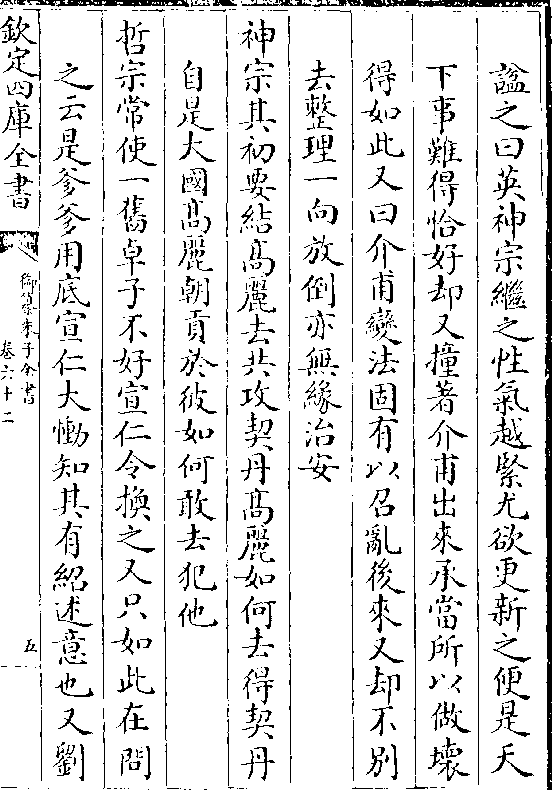 諡之曰英神宗繼之性氣越緊尤欲更新之便是天
下事難得恰好却又撞著介甫出來承當所以做壞
得如此又曰介甫變法固有以召亂後來又却不別
去整理一向放倒亦無緣治安
神宗其初要結髙麗去共攻契丹髙麗如何去得契丹
自是大國髙麗朝貢於彼如何敢去犯他
哲宗常使一舊卓子不好宣仁令換之又只如此在問
之云是爹爹用底宣仁大慟知其有紹述意也又劉
欽定四庫全書
御纂朱子全書
卷六十二
五